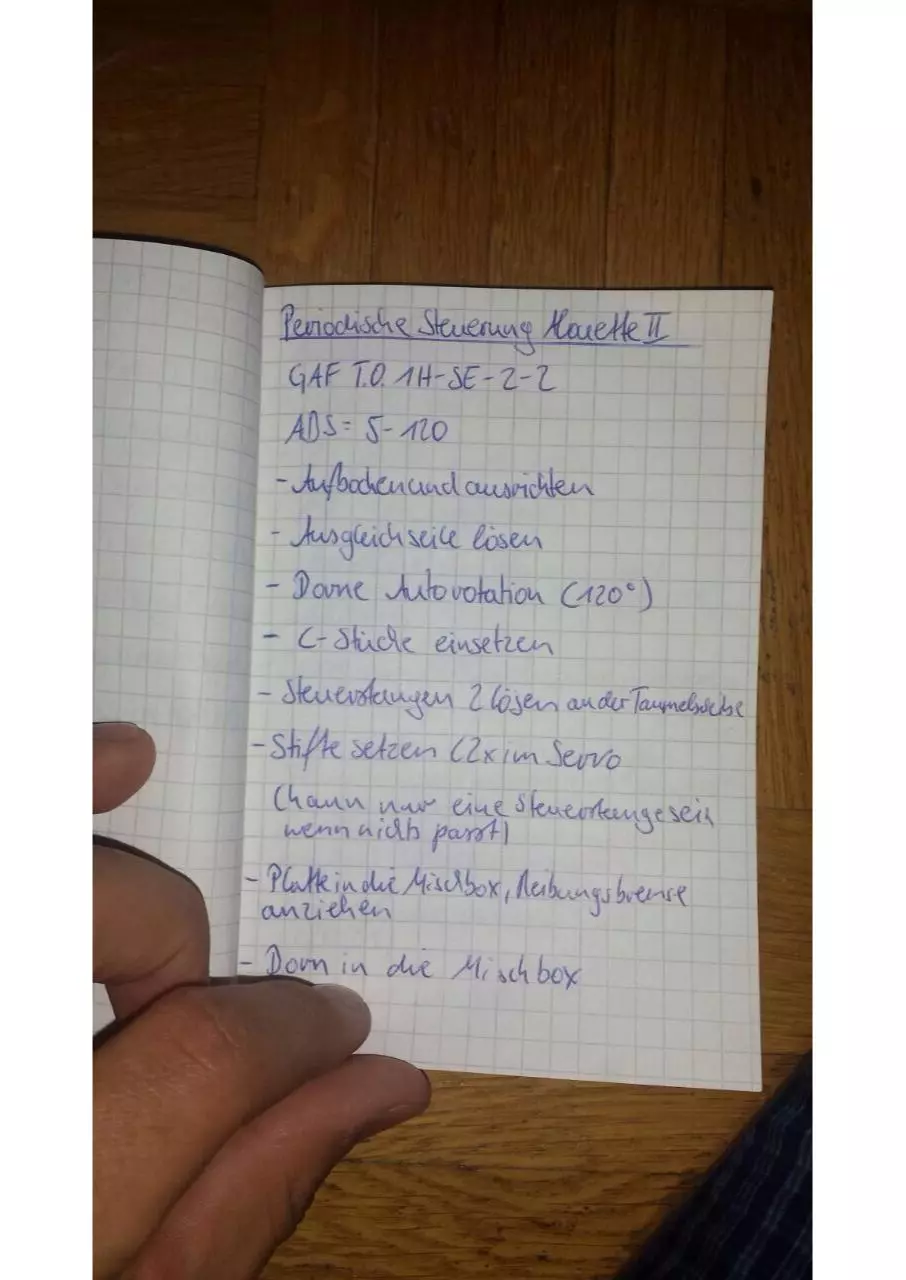 Periodische Steuerung Alouette II
GAF T.O. 1H-SE-2-2
ADS= 5-120
- Aufbocken und ausrichten
- Ausgleichseile lösen
- Dorne Autorotation (120°)
- C-Stücke einsetzen
- Steuerstangen 2 lösen an der Taumelscheibe
- Stifte setzen (2x im Servo
(kann nur eine Steuerstange sein
wenn nichts passt)
- Platte in die Mischbox, Reibungsbremse
anziehen
- Dorn in die Mischbox